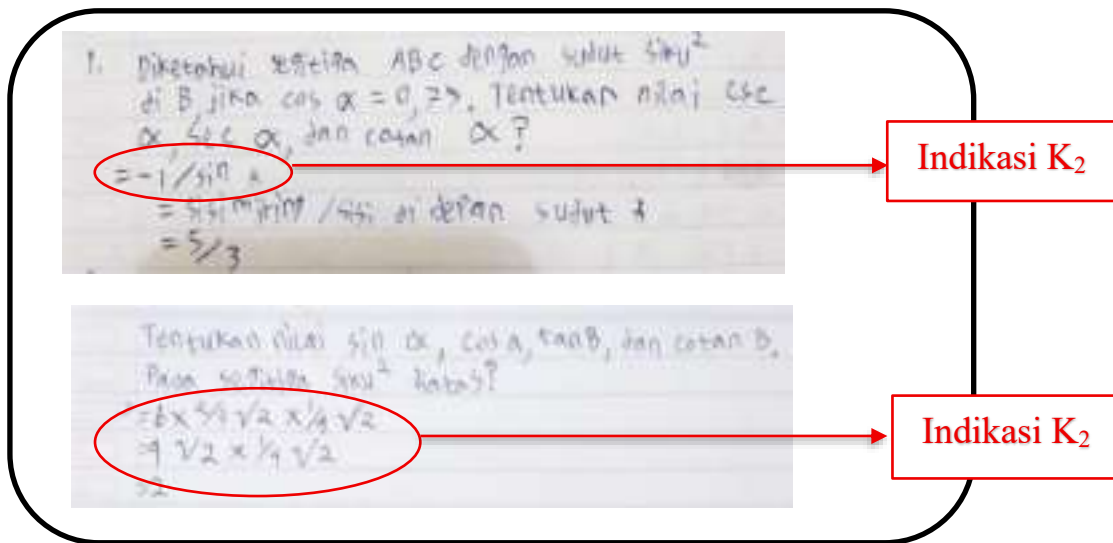 1. Diketahui segitiga ABC dengan sudut siku²
di B jika cos α = 0,75. Tentukan nilai csc
α, sec α, dan cotan α?
= -1/sin
= sisi miring /sisi di depan sudut
= 5/3
Indikasi K₂
Tentukan nilai sin α, cos α, tan B, dan cotan B.
Pada segitiga siku² diatas?
√2 x 1/9 √2
√2 x 1/9 √2
2
Indikasi K₂